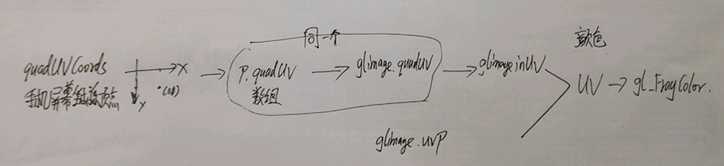 同一个
quadUVCoords
手机屏幕
x
y
P.quadUV
数组
glimage.quadUV
glimage.inUV
glimage.UVP
UV
gl_FragColor.